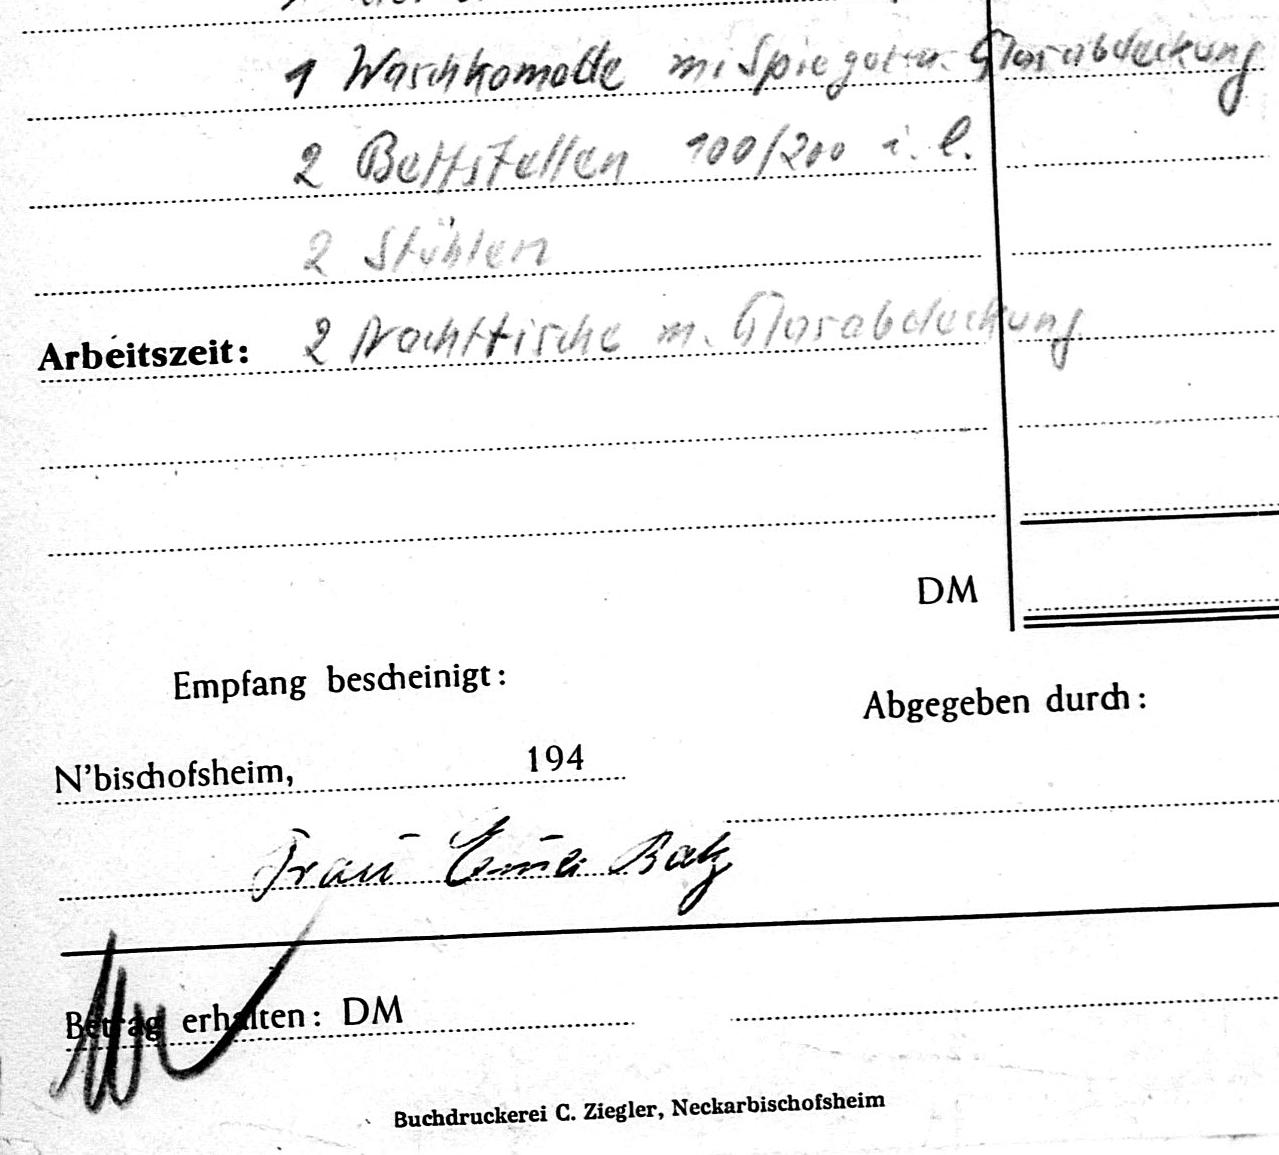 1 Waschkomode mi Spiegel u. Glasabdeckung
2 Bettstellen 100/200 i. l.
2 Stühlen
Arbeitszeit: 2 Nachttische m. Glasabdeckung
DM
Empfang bescheinigt:
Abgegeben durch:
N'bischofsheim, 194
Frau Batz
Betrag erhalten: DM
Buchdruckerei C. Ziegler, Neckarbischofsheim